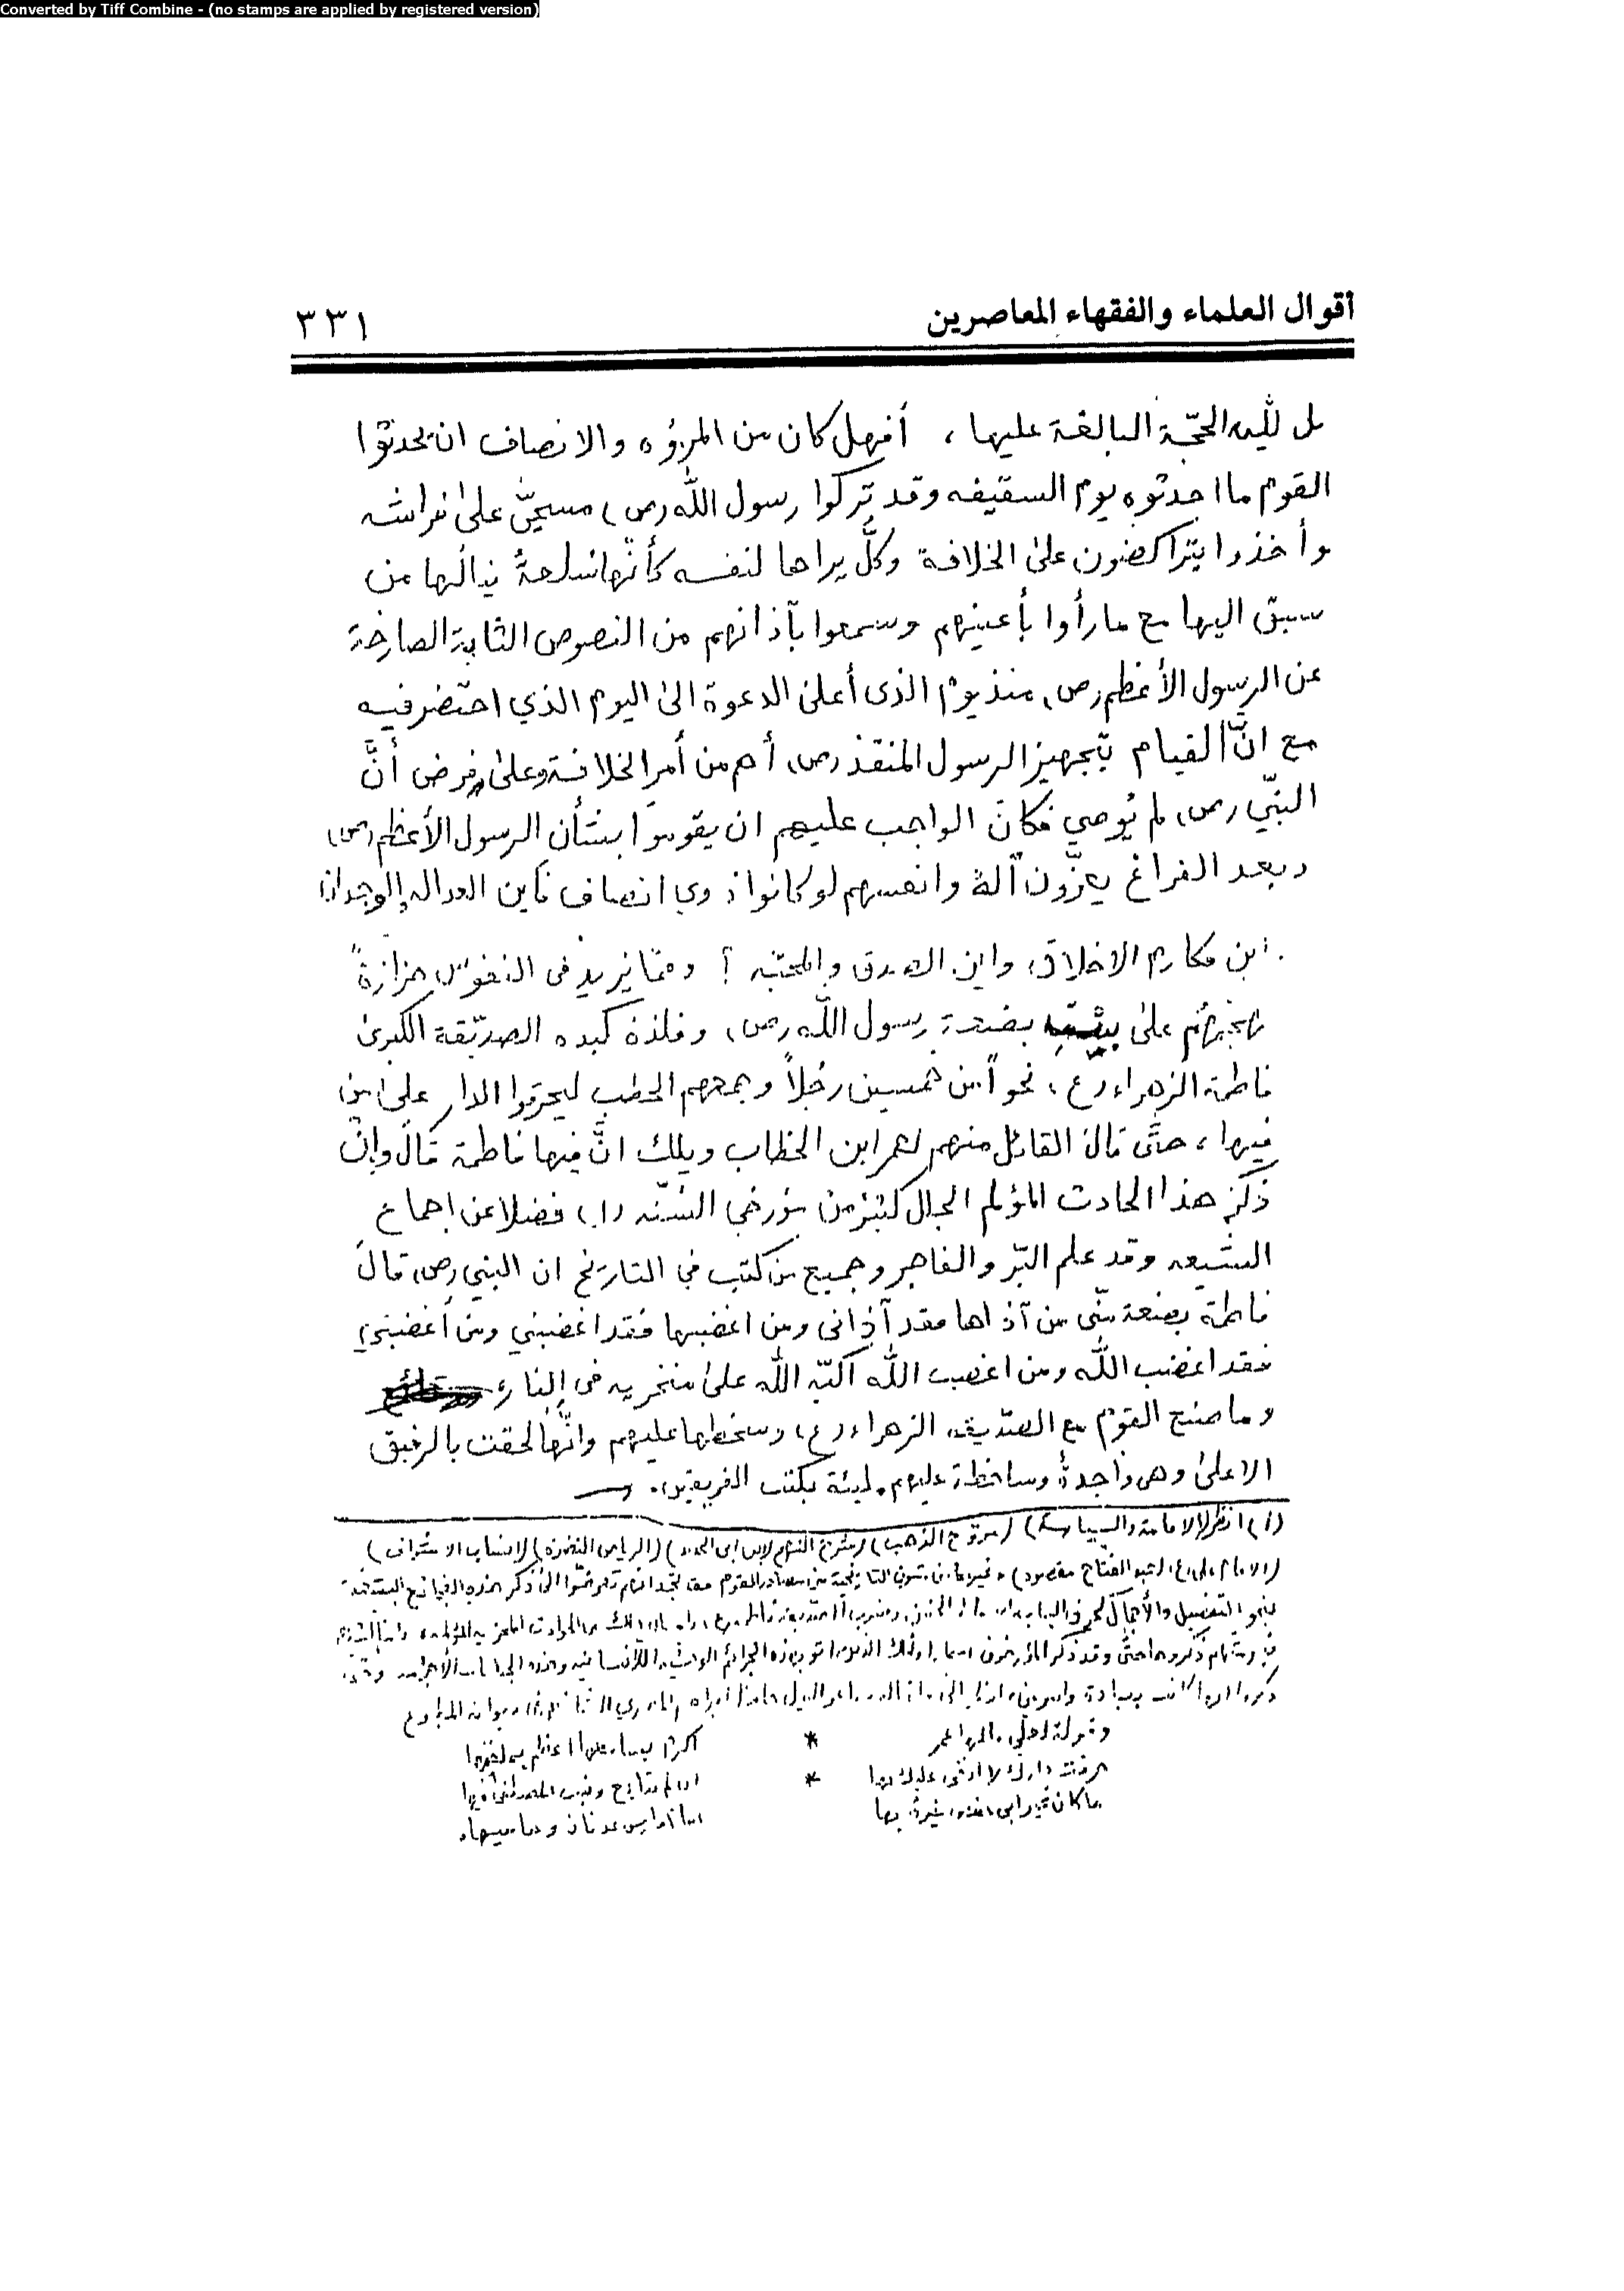 Converted by Tiff Combine - (no stamps are applied by registered version)
أقوال العلماء والفقهاء المعاصرين ٣٣١
بل لله الحجّة البالغة عليها، أفهل كان من المرؤه والانصاف ان يحدثوا
القوم ما احدثوه يوم السقيفه وقد تركوا رسول اللّه (ص) مسجىّ علىٰ فراشه
وأخذوا يتراكضون علىٰ الخلافة وكلٌّ يراها لنفسه كأنّها سلعةٌ ينالُها من
سبق اليها مع ما رأوا بأعينهم وسمعوا بآذانهم من النصوص الثابتة الصارخة
عن الرسول الأعظم (ص) منذ يوم الذى أعلن الدعوة الىٰ اليوم الذي احتضر فيه
مع انَّ القيام بتجهيز الرسول المنقذ (ص) أهم من أمر الخلافة وعلىٰ فرض أنَّ
النبّي (ص) لم يُوصي فكانَ الواجب عليهم ان يقوموا بشأن الرسول الأعظم (ص)
وبعد الفراغ يعزّون آلهُ وانفسهم لو كانوا ذوي انصاف فأين العداله والوجدان
اين مكارم الاخلاق واين الصدق والمحبّه ؟ وممّا يزيد فى النفوس حزازةً
تجمهرُهُم علىٰ بيت بضعة رسول اللّه (ص) وفلذة كبده الصدّيقة الكبرىٰ
فاطمة الزهراء (ع) نحواً من خمسين رجُلاً ومعهم الحطب ليحرقوا الدار علىٰ من
فيها، حتَّى قال القائل منهم لعمر ابن الخطاب ويلك انَّ فيها فاطمة قالَ وإنْ
ذكرَ هذا الحادث المؤلم الجلل كثيرٌ من مؤرخي السُنّه (١) فضلا عن اجماع
الشيعه وقد علم البّر والفاجر وجميع من كتب في التاريخ ان النبي (ص) قالَ
فاطمة بضعة منّى من آذاها فقد آذانى ومن اغضبها فقد اغضبني ومن أغضبني
فقد اغضب اللّه ومن اغضب اللّه اكبّه اللّه علىٰ منخريه فى النار
وما صنع القوم مع الصدّيقه الزهراء (ع) وسخطها عليهم وانَّها لحقت بالرفيق
الاعلىٰ وهى واجدةٌ وساخطة عليهم مليئة بكتب الفريقين.
(١) انظر (الامامة والسياسة) (مروّج الذهب) (شرح النهج لابن ابى الحديد) (الرياض النضرة) (انساب الاشراف)
(الامام على (ع) لعبد الفتاح مقصود) وغيرها من
بنحو التفصيل والأجمال
وقد ذكر المؤرخون
وقولة لعلي قالها عمر * اكرم بسامعها اعظم بملقيها
حرقت دارك لا ابقى عليك بها * ان لم تبايع وبنت المصطفىٰ فيها
ما كان غير ابى حفص بها امام فارس عدنان وحاميها